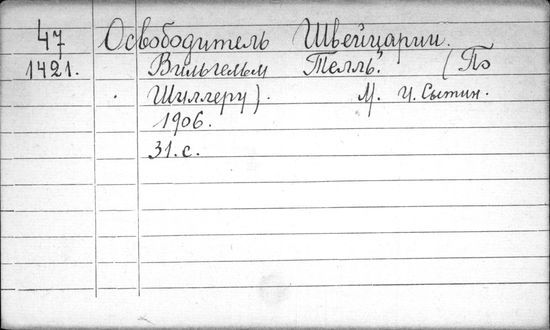 47 Освободитель Швейцарии.
1421. Вильгельм Телль. (По
Шиллеру). М. И. Сытин.
1906.
31. с.